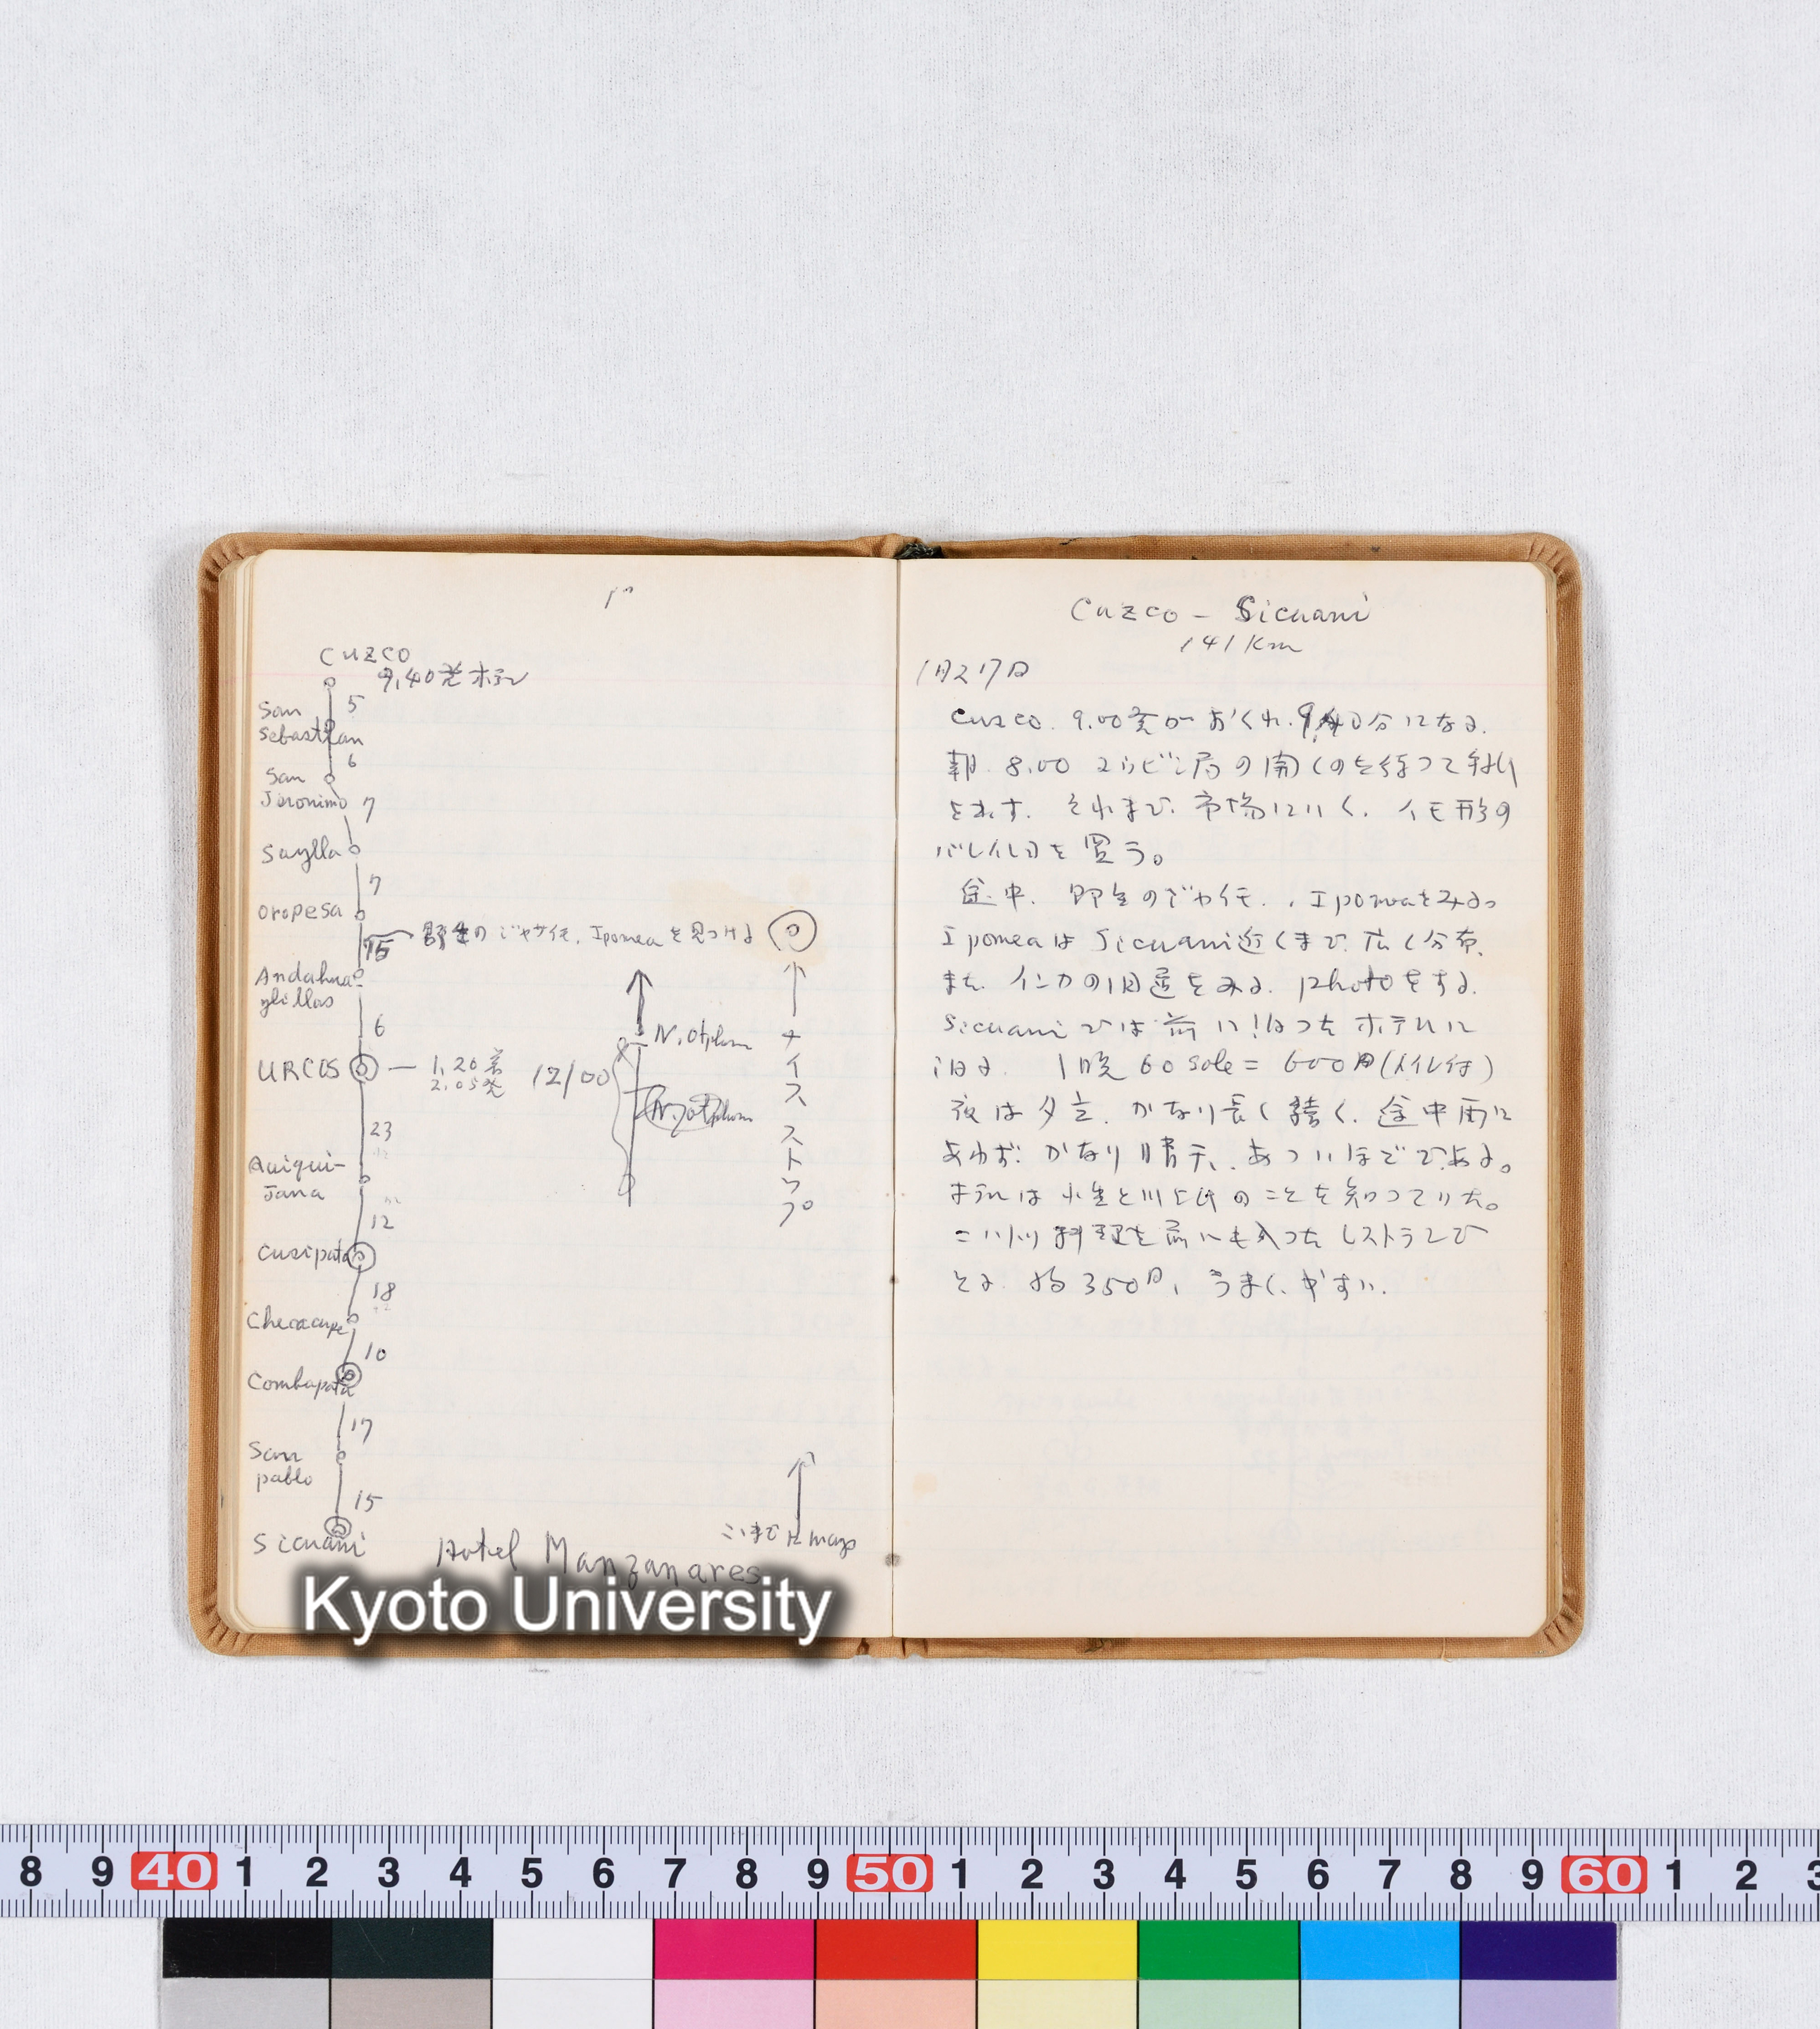 Cuzco
9,40発 ホテル
5
San
Sebastian
6
San
Jeronimo
7
Saylla
7
Oropesa
15
野生のジャガイモ, Ipomea を見つける
Andahua-
ylillas
6
URCOS
1,20着
2.05発
12/00
N. otphon
ナイスストップ
23
Quiqui-
Jana
12
Cusipata
18
Checacupe
10
Combapata
17
San
pablo
15
Sicuani
Hotel Manzanares
Cuzco - Sicuani
141 Km
1月27日
Cuzco. 9.00発がおくれ. 9,40分になる.
朝. 8.00 ユウビン局の開くのを待って
を出す. それまで. 市場にいく. イモ形の
を買う。
途中. 野生のジャガイモ, Ipomeaをみる。
IpomeaはSicuani近くまで. 広く分布.
また. インカの旧蹟をみる. photoをする.
Sicuaniでは前に泊つたホテルに
泊る. 1晩 60 sole = 600円(トイレ付)
夜は夕立. かなり長く続く. 途中雨に
あわず. かなり晴天. あついほどである。
ホテルは小生と川上氏のことを知っていた。
料理を前にも入つたレストランで
とる. 約350円, うまく, やすい.
Kyoto University
8 9 40 1 2 3 4 5 6 7 8 9 50 1 2 3 4 5 6 7 8 9 60 1 2 3